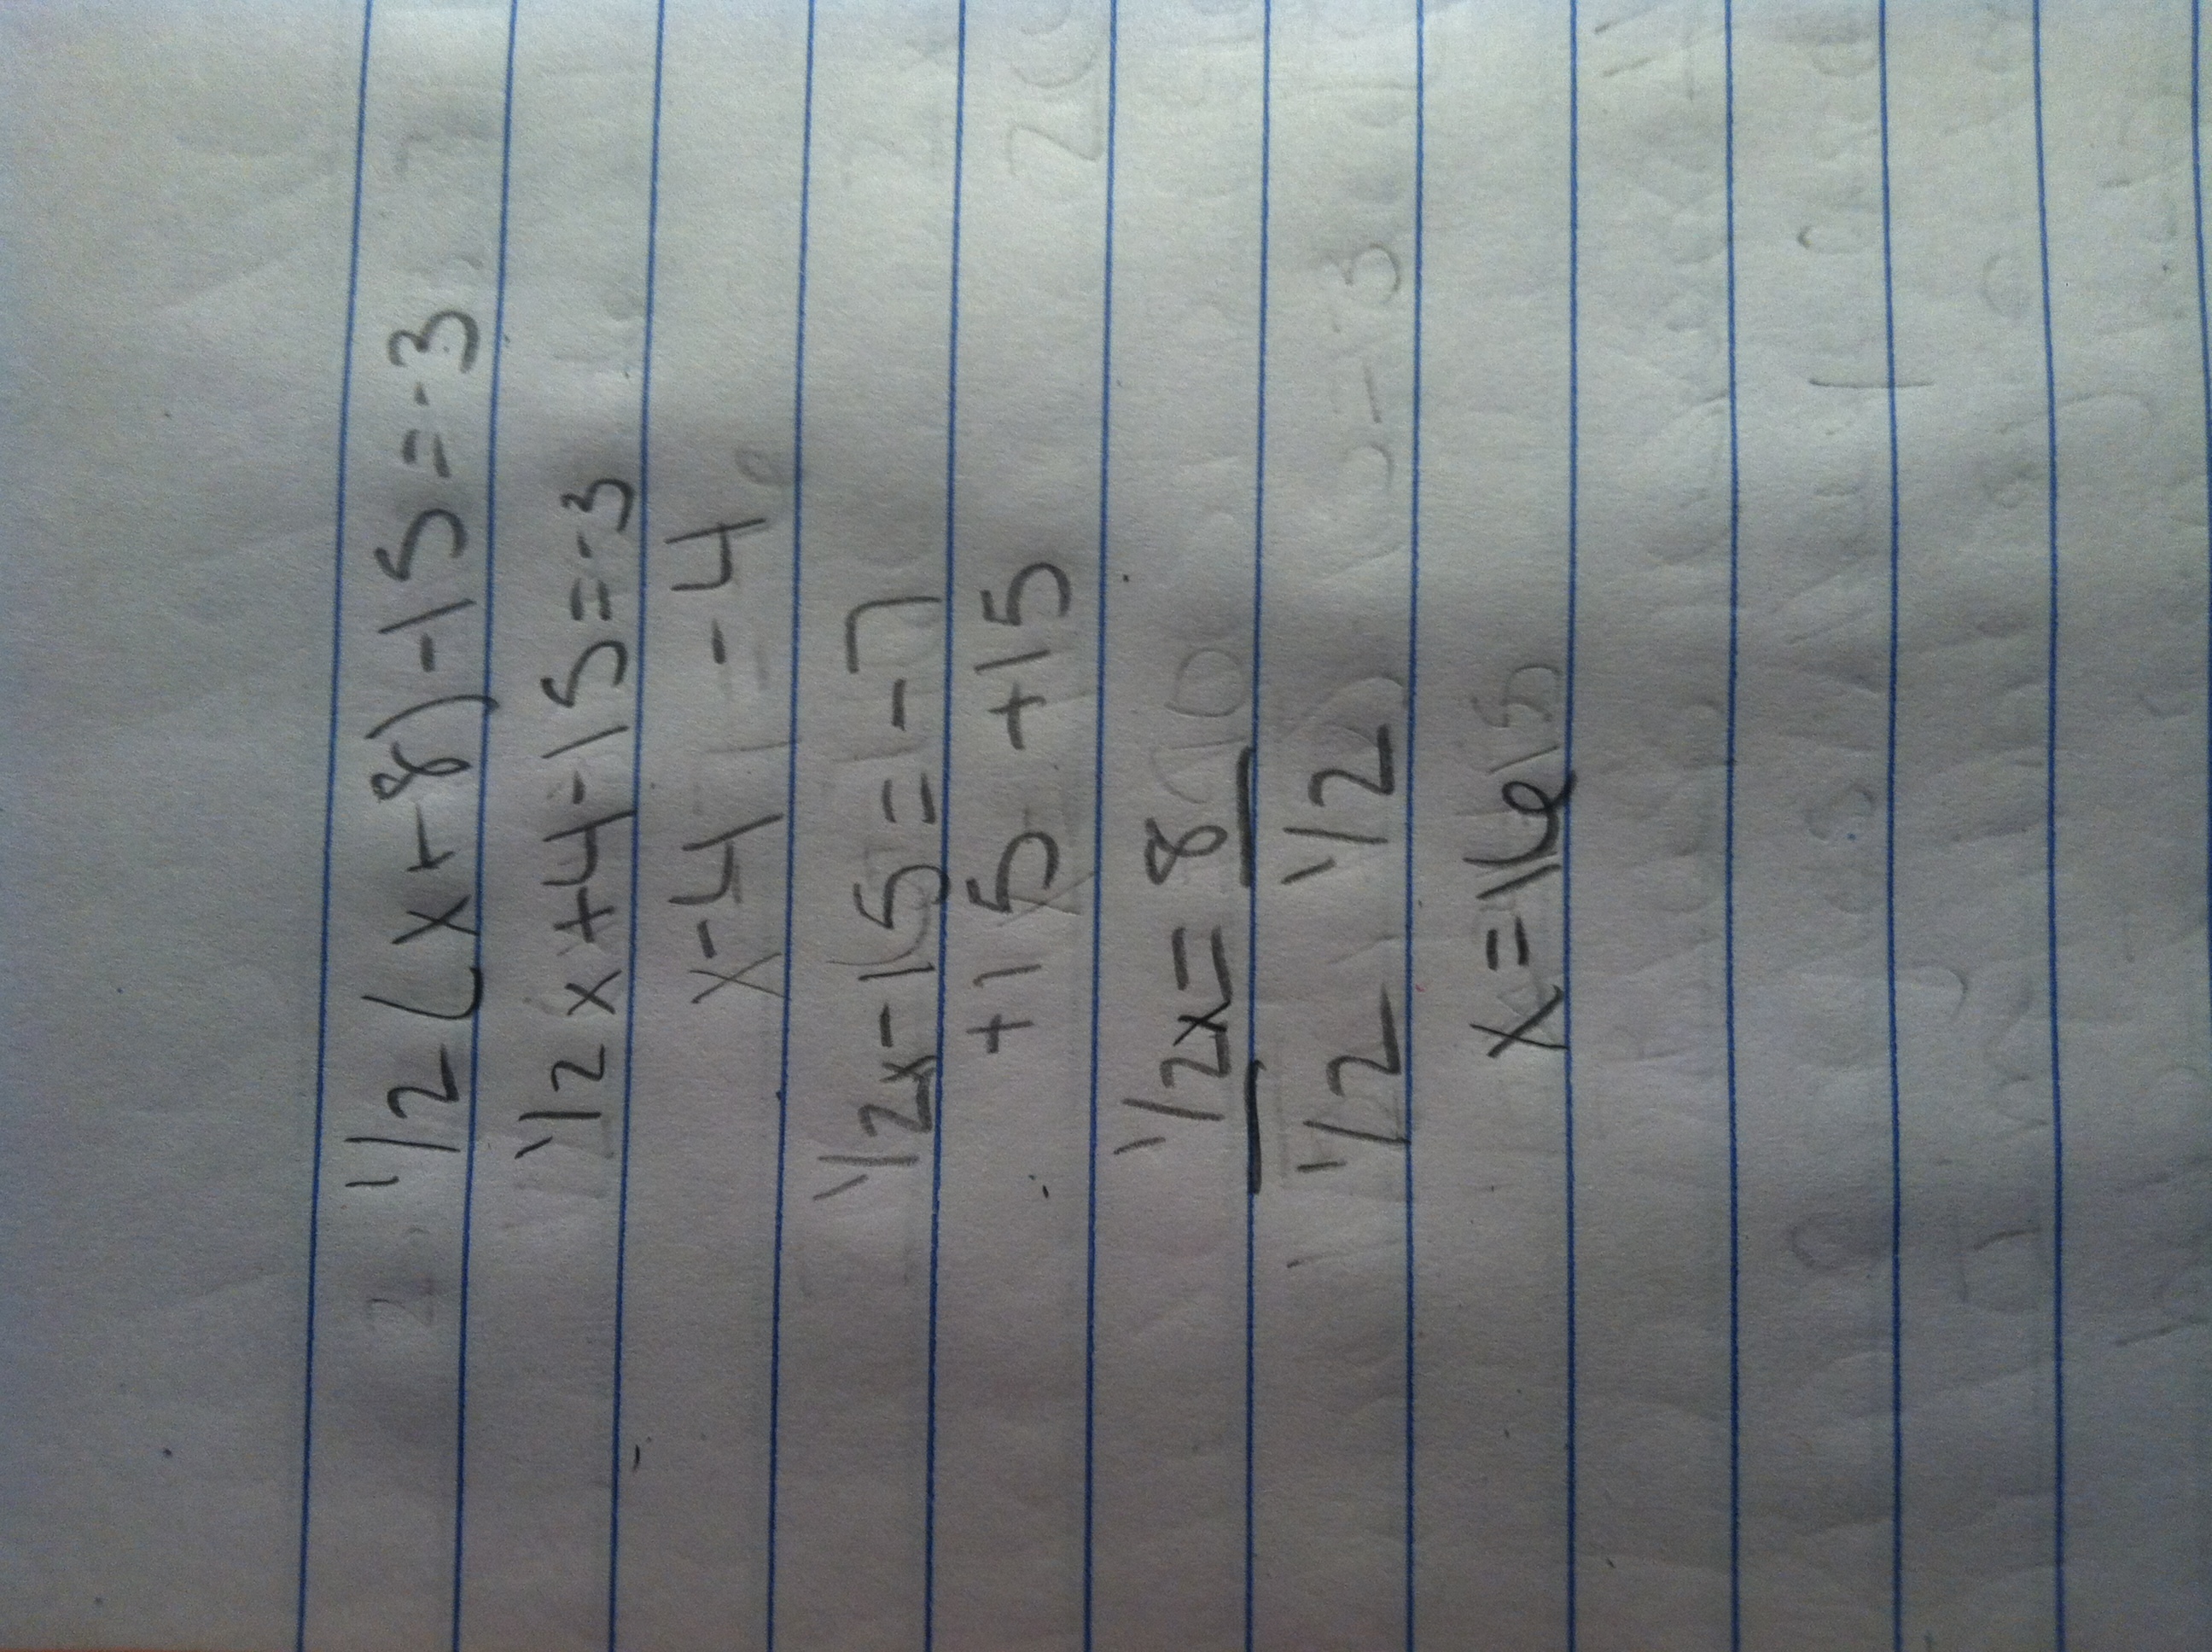 1/2(x+8)-15=-3
1/2x+4-15=-3
x-4 -4
1/2x-15=-7
+15 +15
1/2x=8
1/2 1/2
x=16